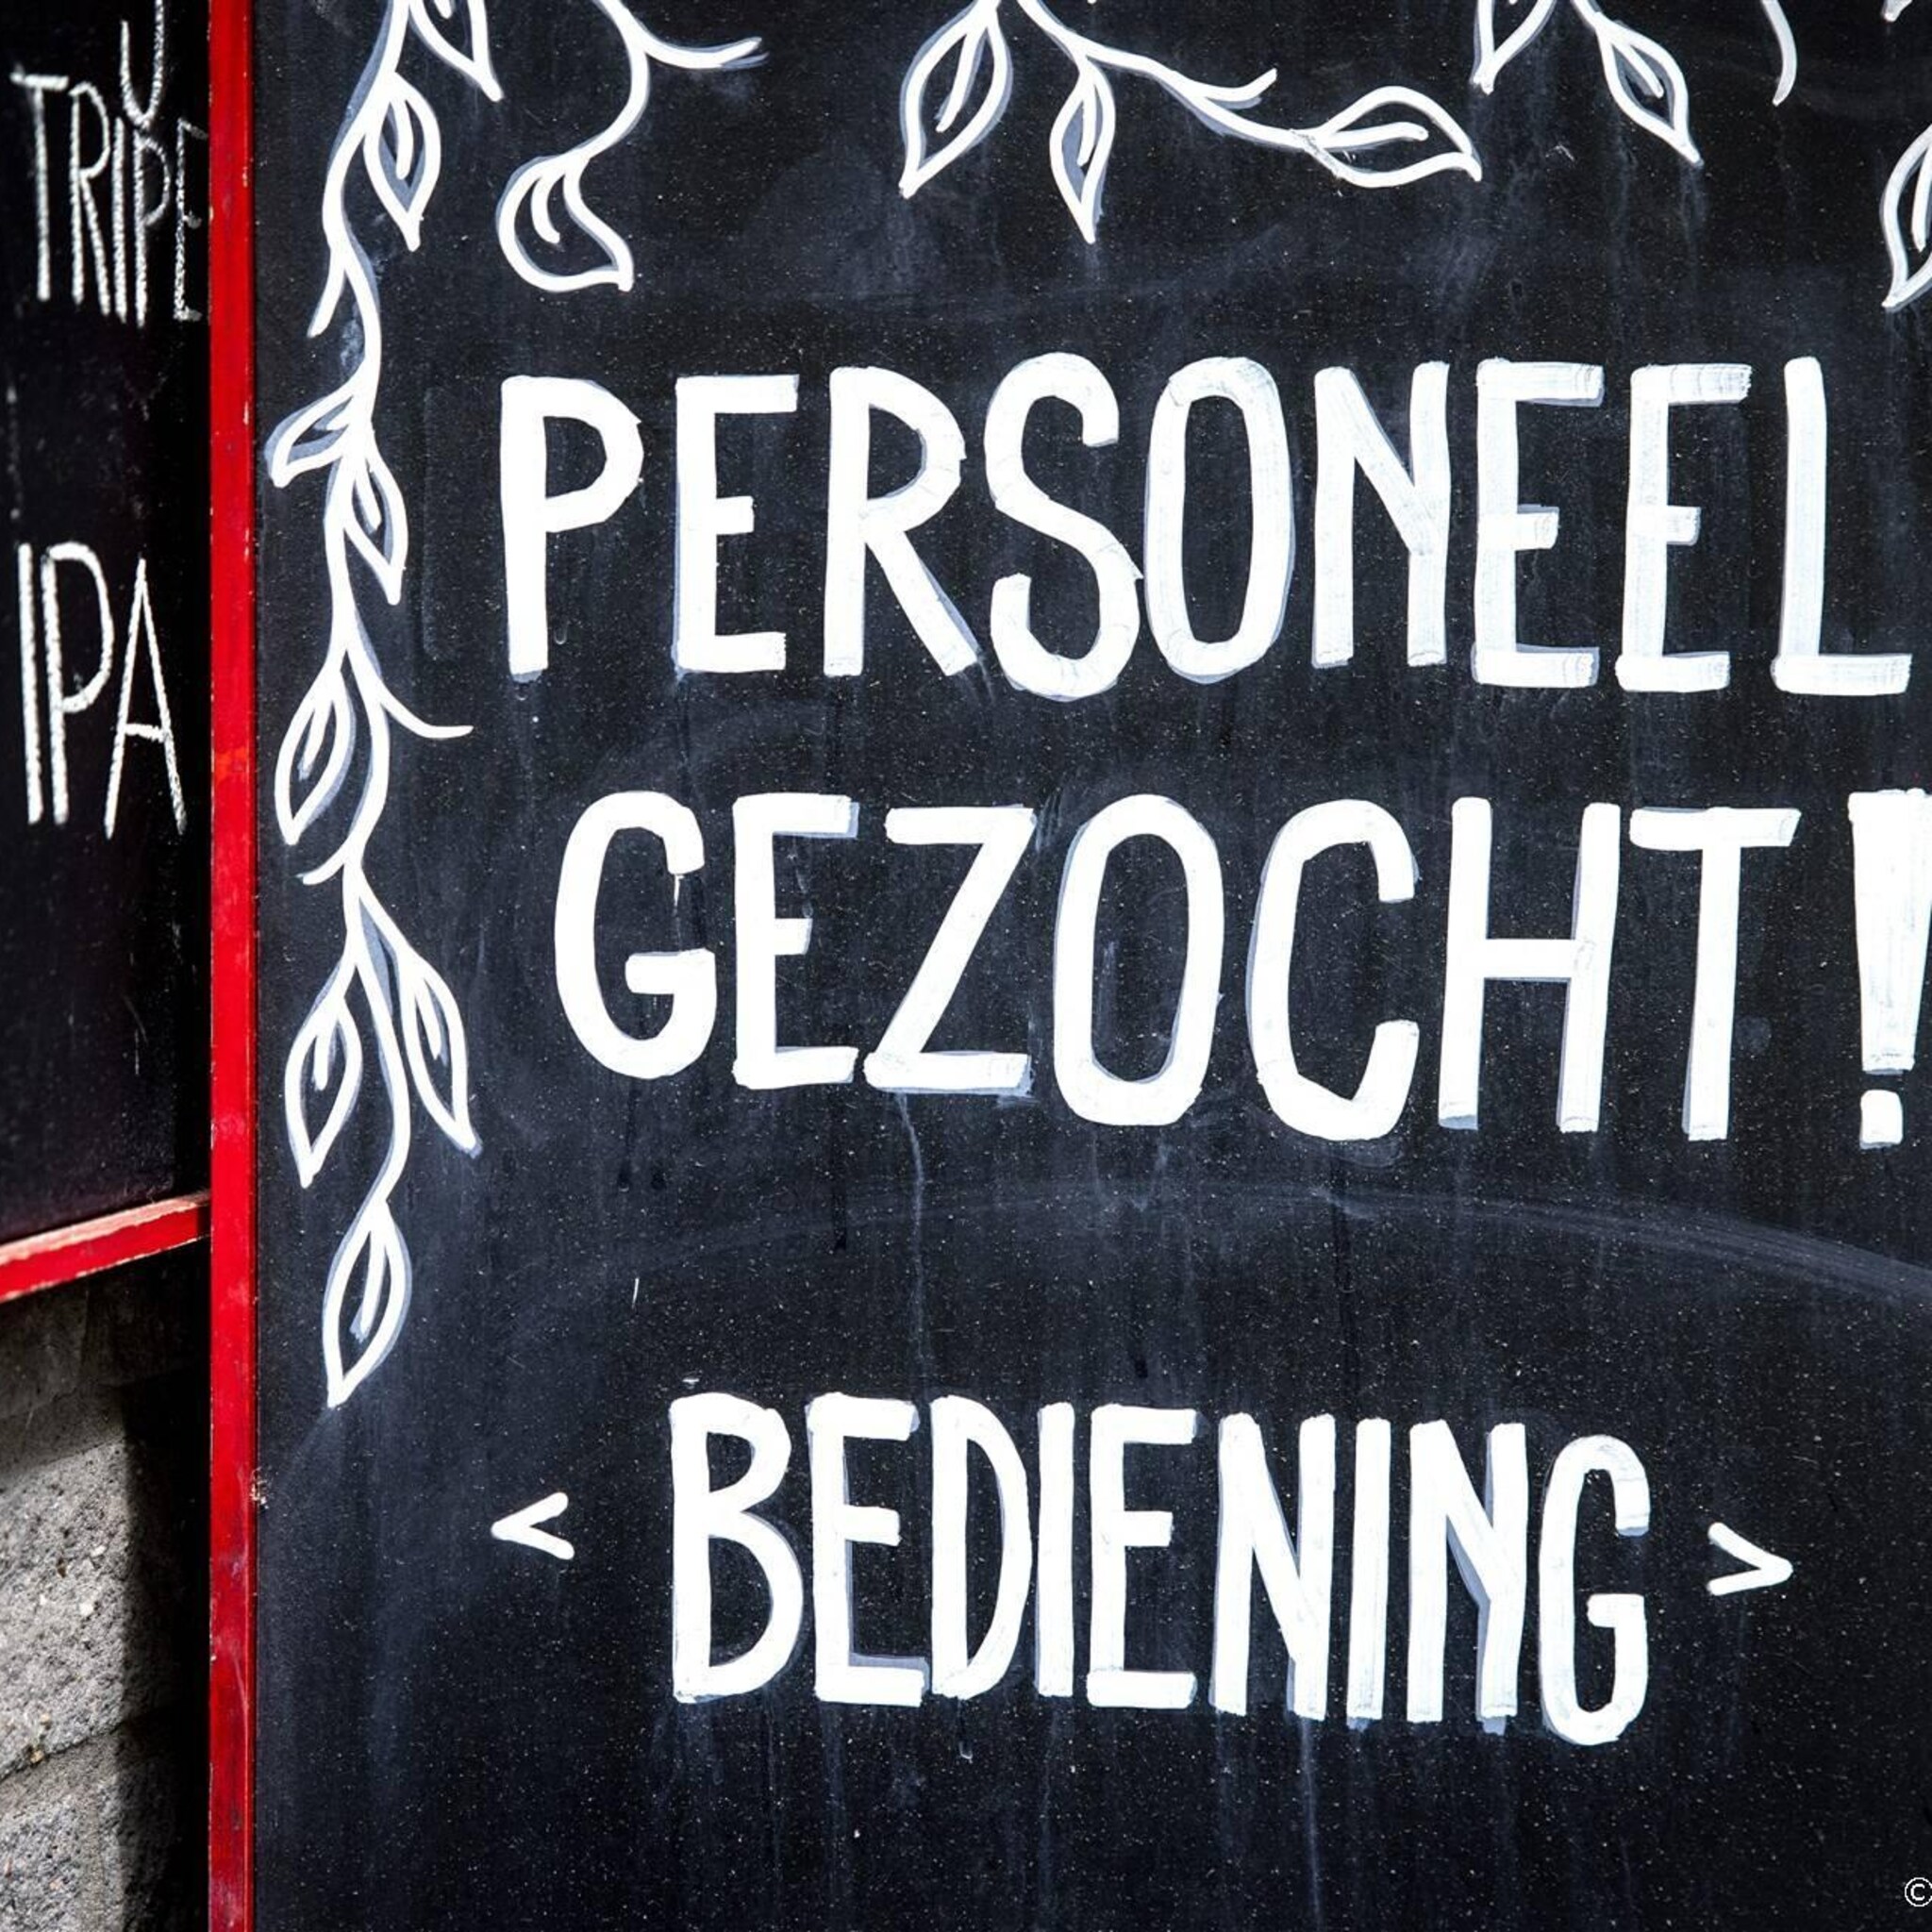 IPA
PERSONEEL
GEZOCHT!
< BEDIENING >
©